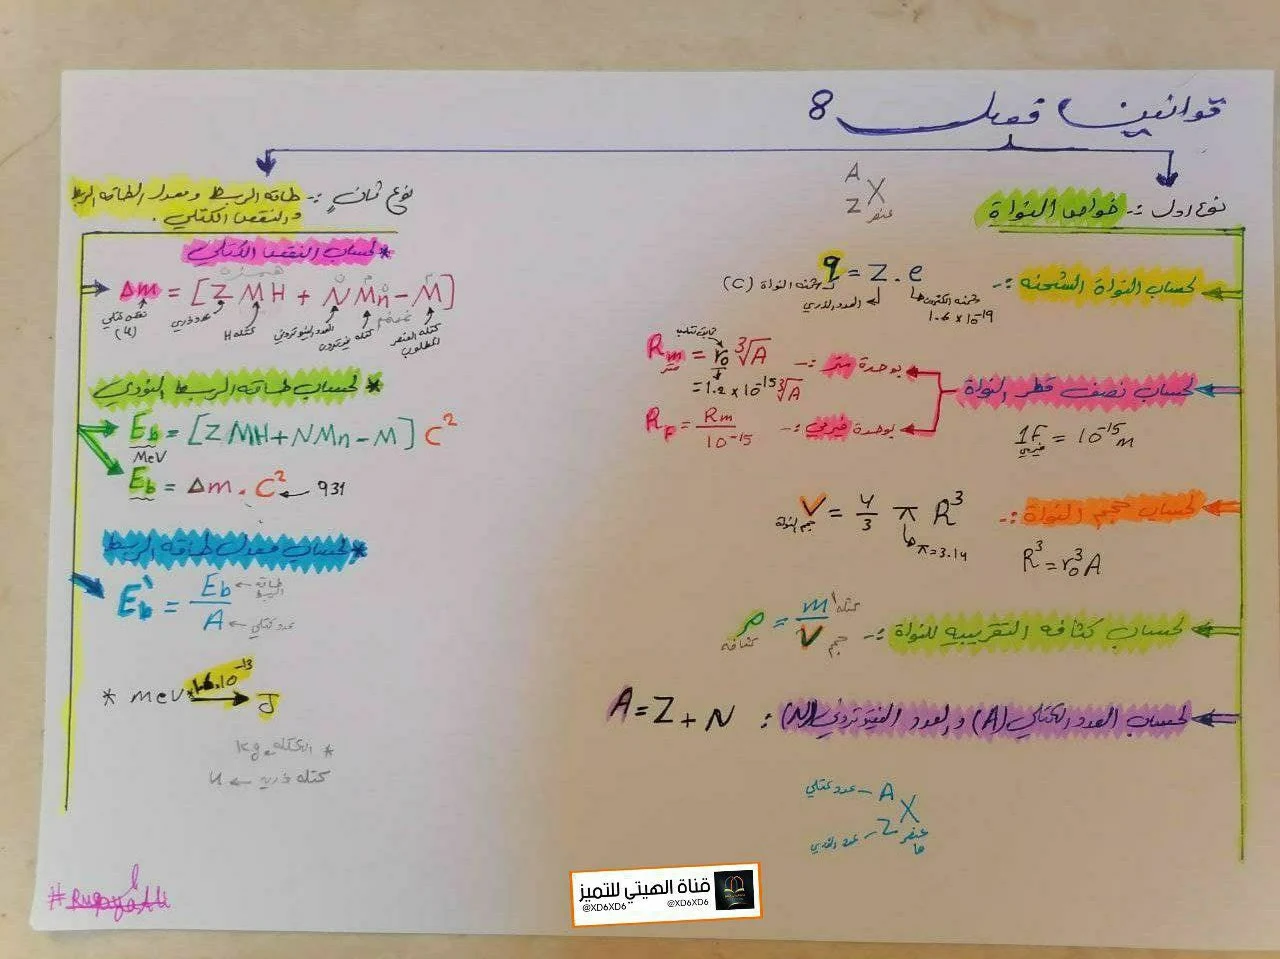 قوانين فصل 8
نوع اول :- خواص النواة
A
X
Z عنصر
لحساب النواة الشحنه :-
q = Z . e
شحنه النواة (C)
العدد الذري
شحنه الكترون
1.6 × 10⁻¹⁹
لحساب نصف قطر النواة
بوحدة متر :-
Rm = r₀ ∛A
متر
= 1.2 × 10⁻¹⁵ ∛A
بوحدة فيرمي :-
R_F = Rm / 10⁻¹⁵
1F = 10⁻¹⁵ m
فيرمي
لحساب حجم النواة :-
V = 4/3 π R³
حجم النواة
π = 3.14
R³ = r₀³ A
لحساب كثافه التقريبيه للنواة :-
ρ = m' / V
كثافه
كتله
حجم
لحساب العدد الكتلي (A) والعدد النيوتروني (N) :
A = Z + N
عدد كتلي - A
X
Z - عدد الذري
عنصر ما
نوع ثانٍ :- طاقه الربط ومعدل الطاقه الربط
والنقص الكتلي .
* لحساب النقص الكتلي
Δm = [Z MH + N Mn - M]
نقص كتلي
(u)
عدد ذري
كتله H
العدد النيوتروني
كتله نيوترون
كتله العنصر
المطلوب
* لحساب طاقه الربط النووي
Eb = [Z MH + N Mn - M] C²
MeV
Eb = Δm . C² ← 931
* لحساب معدل طاقه الربط
Eb' = Eb / A
طاقه الربط
عدد كتلي
* MeV × 1.6.10⁻¹³ → J
* الكتله kg
كتله ذريه ← u
#RuqayaAli
قناة الهيتي للتميز
@XD6XD6 @XD6XD6